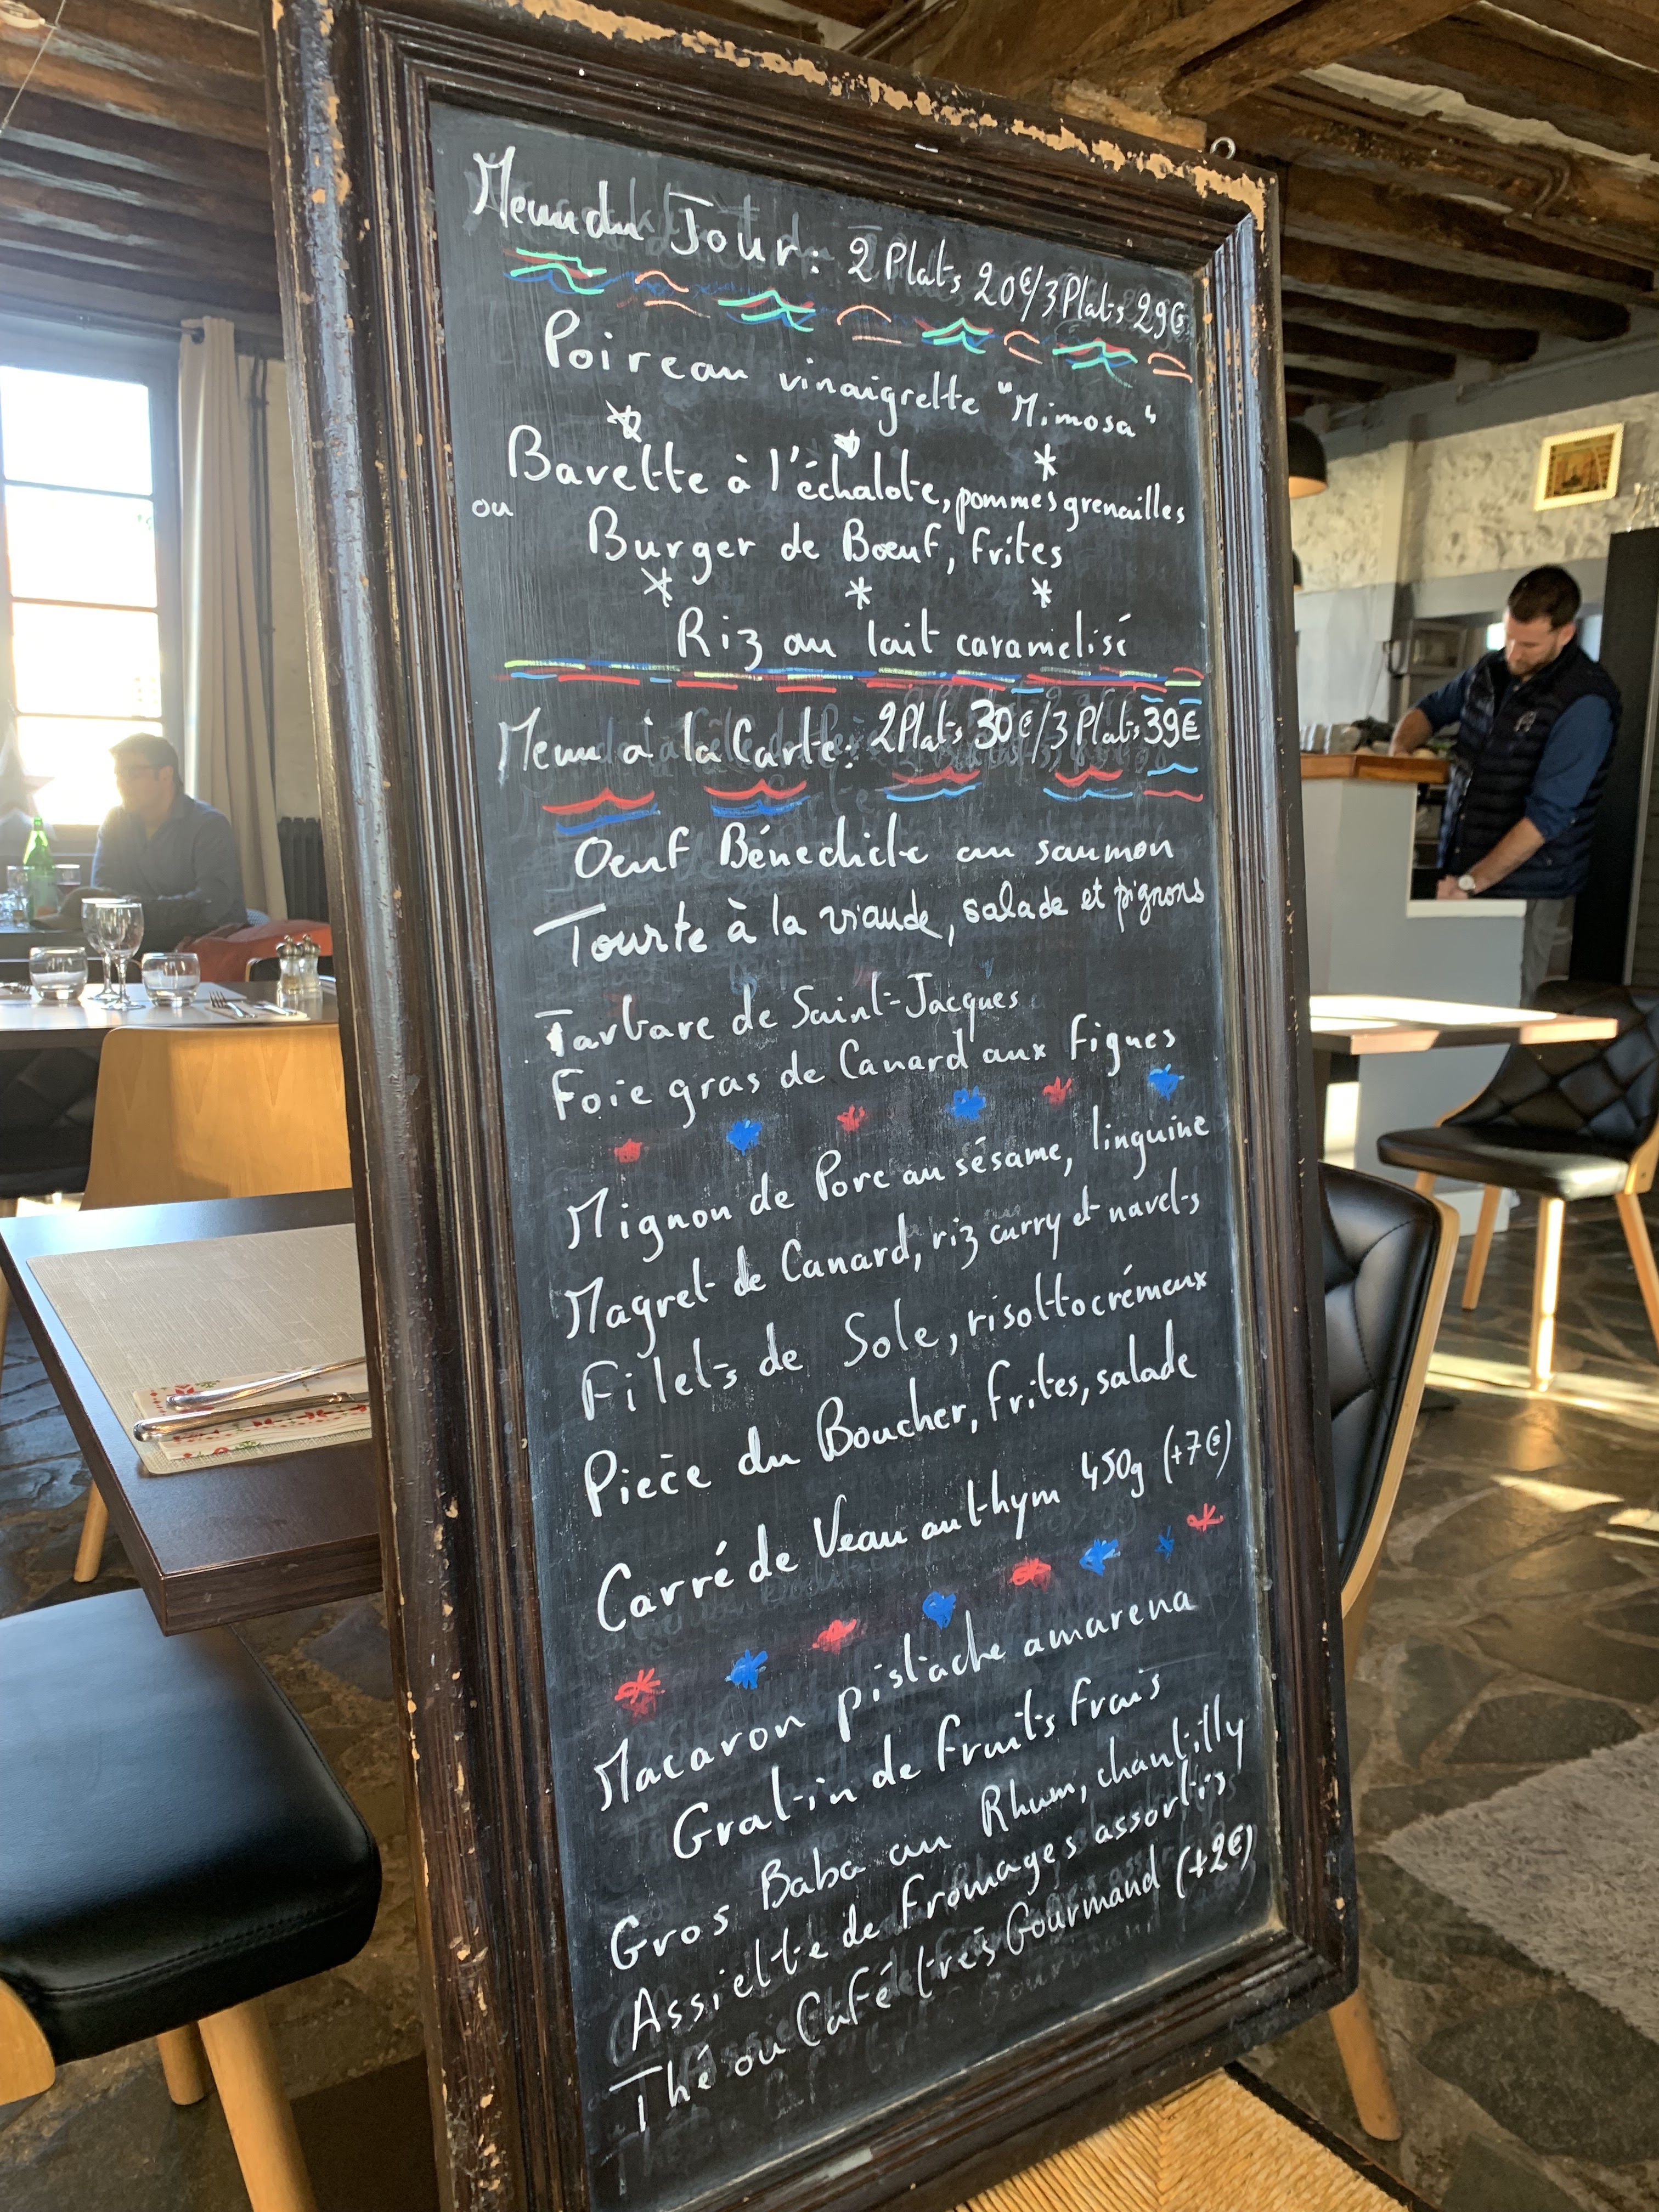 Menu du Jour: 2 Plats 20€/3 Plats 29€
Poireau vinaigrette "Mimosa"
Bavette à l'échalote, pommes grenailles
ou
Burger de Bœuf, frites
Riz au lait caramelisé
Menu à la Carte: 2 Plats 30€/3 Plats 39€
Oeuf Bénedicte au saumon
Tourte à la viande, salade et pignons
Tartare de Saint-Jacques
Foie gras de Canard aux figues
Mignon de Porc au sésame, linguine
Magret de Canard, riz curry et navets
Filets de Sole, risotto crémeux
Pièce du Boucher, frites, salade
Carré de Veau au thym 450g (+7€)
Macaron pistache amarena
Gratin de fruits frais
Gros Baba au Rhum, chantilly
Assiette de fromages assortis
Thé ou Café très Gourmand (+2€)